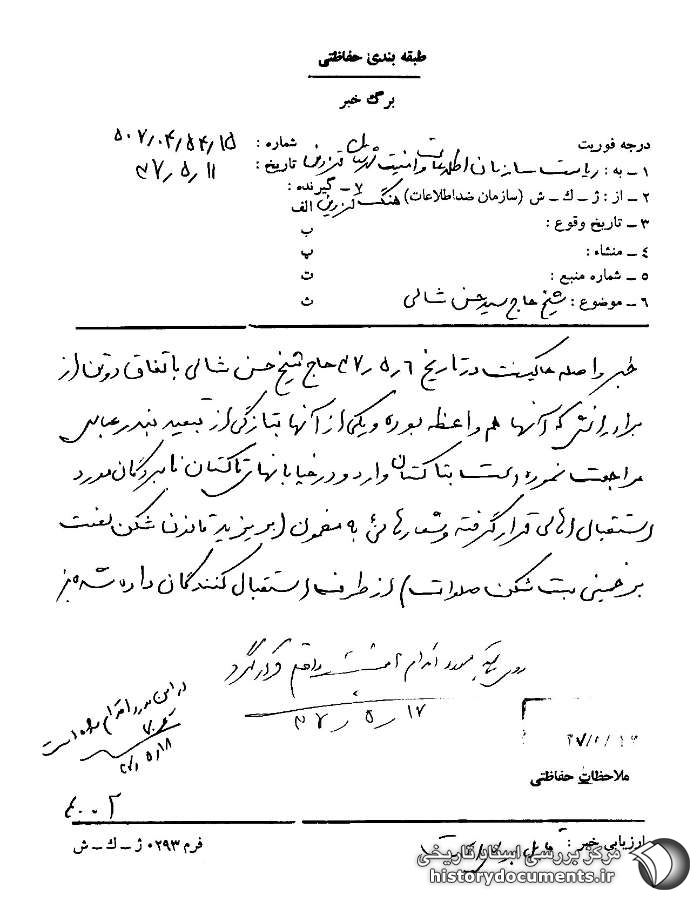 طبقه بندی حفاظتی
برگ خبر
درجه فوریت
شماره : ۵۰۷/۰۴/۵۴/۱۵
۱ – به : ریاست سازمان اطلاعات و امنیت قزوین
تاریخ : ۳۷/۵/۱۱
۲ – از : ژ – ک – ش (سازمان ضداطلاعات) هنگ قزوین
۷ – گیرنده :
الف
۳ – تاریخ وقوع :
ب
۴ – منشاء :
پ
۵ – شماره منبع :
ت
۶ – موضوع : شیخ حاج سید حسن شالی
ث
خبر واصله حاکیست در تاریخ ۳۷/۵/۶ حاج شیخ حسن شالی باتفاق دو تن از
برادرانش که آنها هم واعظ بوده و یکی از آنها بتازگی از تبعید بندرعباس
مراجعت نموده است بتاکستان وارد و در خیابانهای تاکستان نامبردگان مورد
استقبال اهالی قرار گرفته و شعارهائی به مضمون (بر یزید قانون شکن لعنت
بر خمینی بت شکن صلوات) از طرف استقبال کنندگان داده شده
مورد اقدام واقع
۳۷/۵/۱۷
در این مورد اقدام شده است
۳۷/۵/۱۸
ملاحظات حفاظتی
۴۰۰۲
ارزیابی خبر :
فرم ۰۲۹۳ ژ – ک – ش
مرکز بررسی اسناد تاریخی
historydocuments.ir